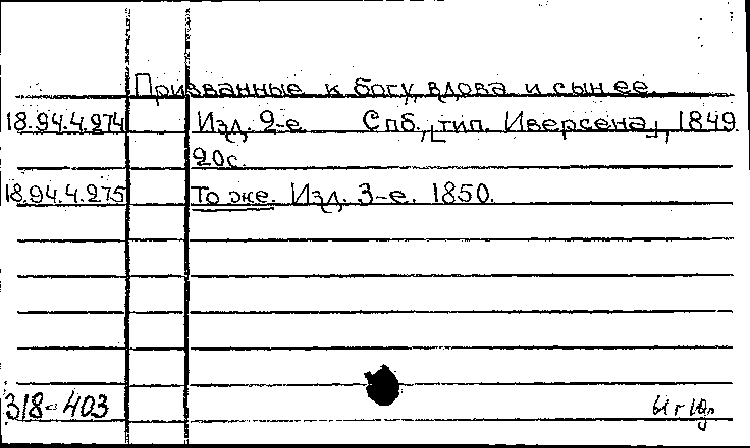 Призванные к богу вдова и сын ее.
18.94.4.274 Изд. 2-е Спб., [тип. Иверсена], 1849.
20с.
18.94.4.275 То же. Изд. 3-е. 1850.
318-403